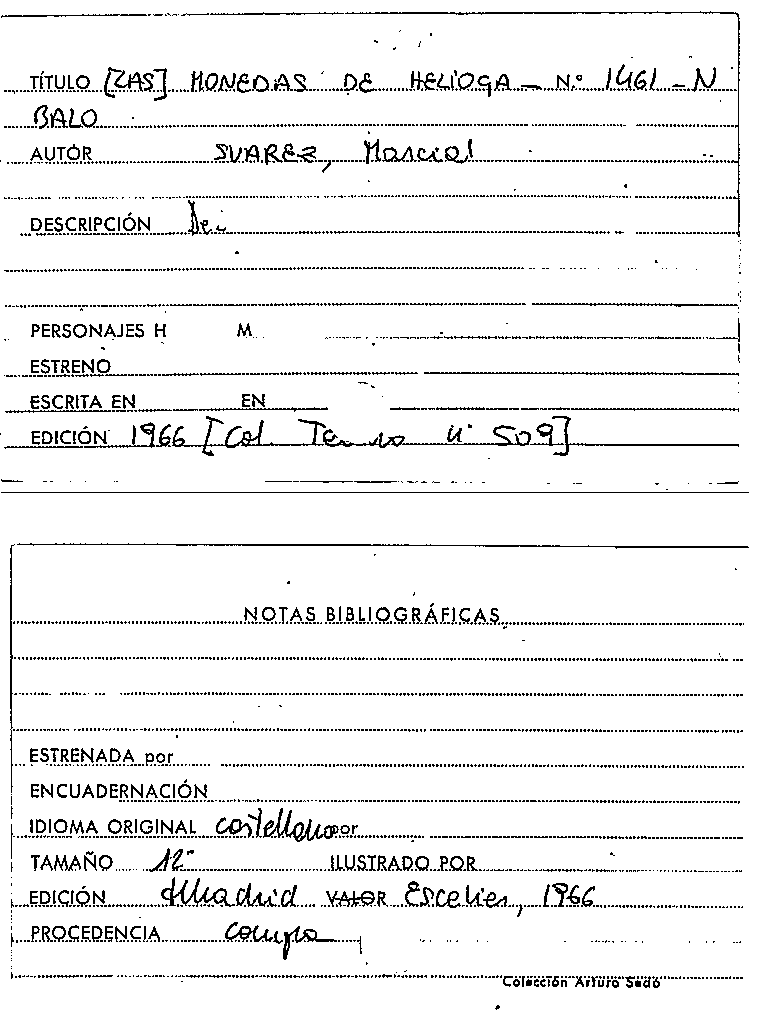 TÍTULO [LAS] MONEDAS DE HELIOGA — N.º 1461 - N
BALO
AUTOR SUAREZ, Marcial
DESCRIPCIÓN
PERSONAJES H M
ESTRENO
ESCRITA EN EN
EDICIÓN 1966 [Col. Teatro nº 509]
NOTAS BIBLIOGRÁFICAS
ESTRENADA por
ENCUADERNACIÓN
IDIOMA ORIGINAL castellano por
TAMAÑO 12º ILUSTRADO POR
EDICIÓN Madrid VALOR Escelier, 1966
PROCEDENCIA compra
Colección Arturo Sedó